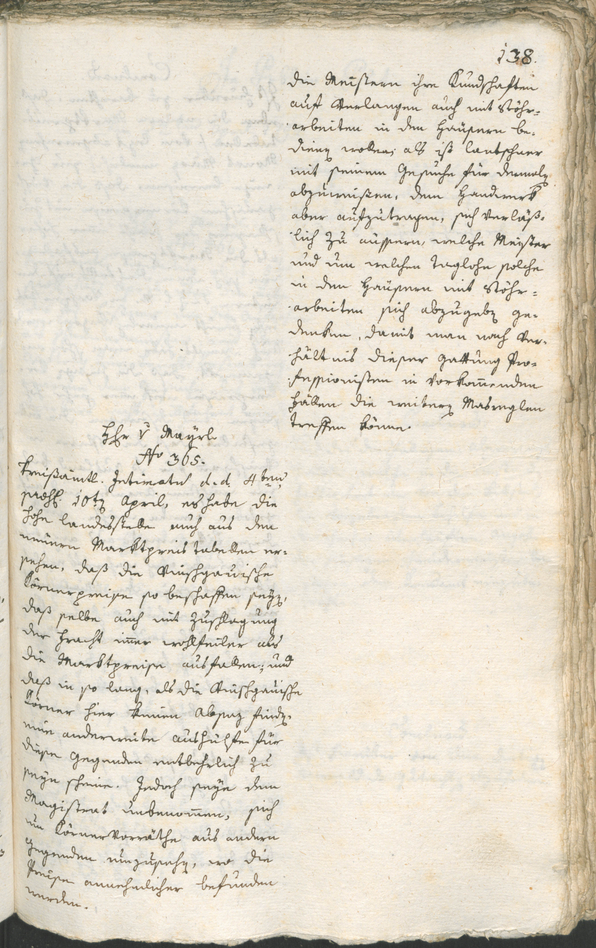 138.
die Meistern ihre Kundschaften
auf Verlangen auch mit Stöhr-
arbeiten in den Häusern be-
dienen wollen; als ist Lantschner
mit seinem Gesuche für dermalen
abzuweisen, dem Handwerk
aber aufzutragen, sich verläß-
lich zu äussern, welche Meister
und um welchen Taglohn solche
in den Häusern mit Stöhr-
arbeiten sich abzugeben ge-
denken, damit man nach Ver-
hältnis dieser Gattung Pro-
fessionisten in vorkommenden
Fällen die weitern Masreglen
treffen könne.
Hr v Mayrl
No 365.
Kreisämtl. Intimatum d. d. 4ten
praes. 10ten April, es habe die
hohe Landesstelle auch aus den
neuern Marktpreistabellen er-
sehen, daß die Vinschgauische
Körnerpreise so beschaffen seyn,
daß selbe auch mit Zuschlagung
der Fracht immer wohlfeiler als
die Marktpreise ausfallen; und
daß in so lang, als die Vinschgauische
Körner hier keinen Absaz finden,
eine anderweite Aushülfe für
diese Gegenden entbehrlich zu
seyn scheine. Jedoch seye dem
Magistrat unbenommen, sich
um Körnervorräthe aus andern
Gegenden umzusehen, wo die
Preise annehmlicher befunden
werden.